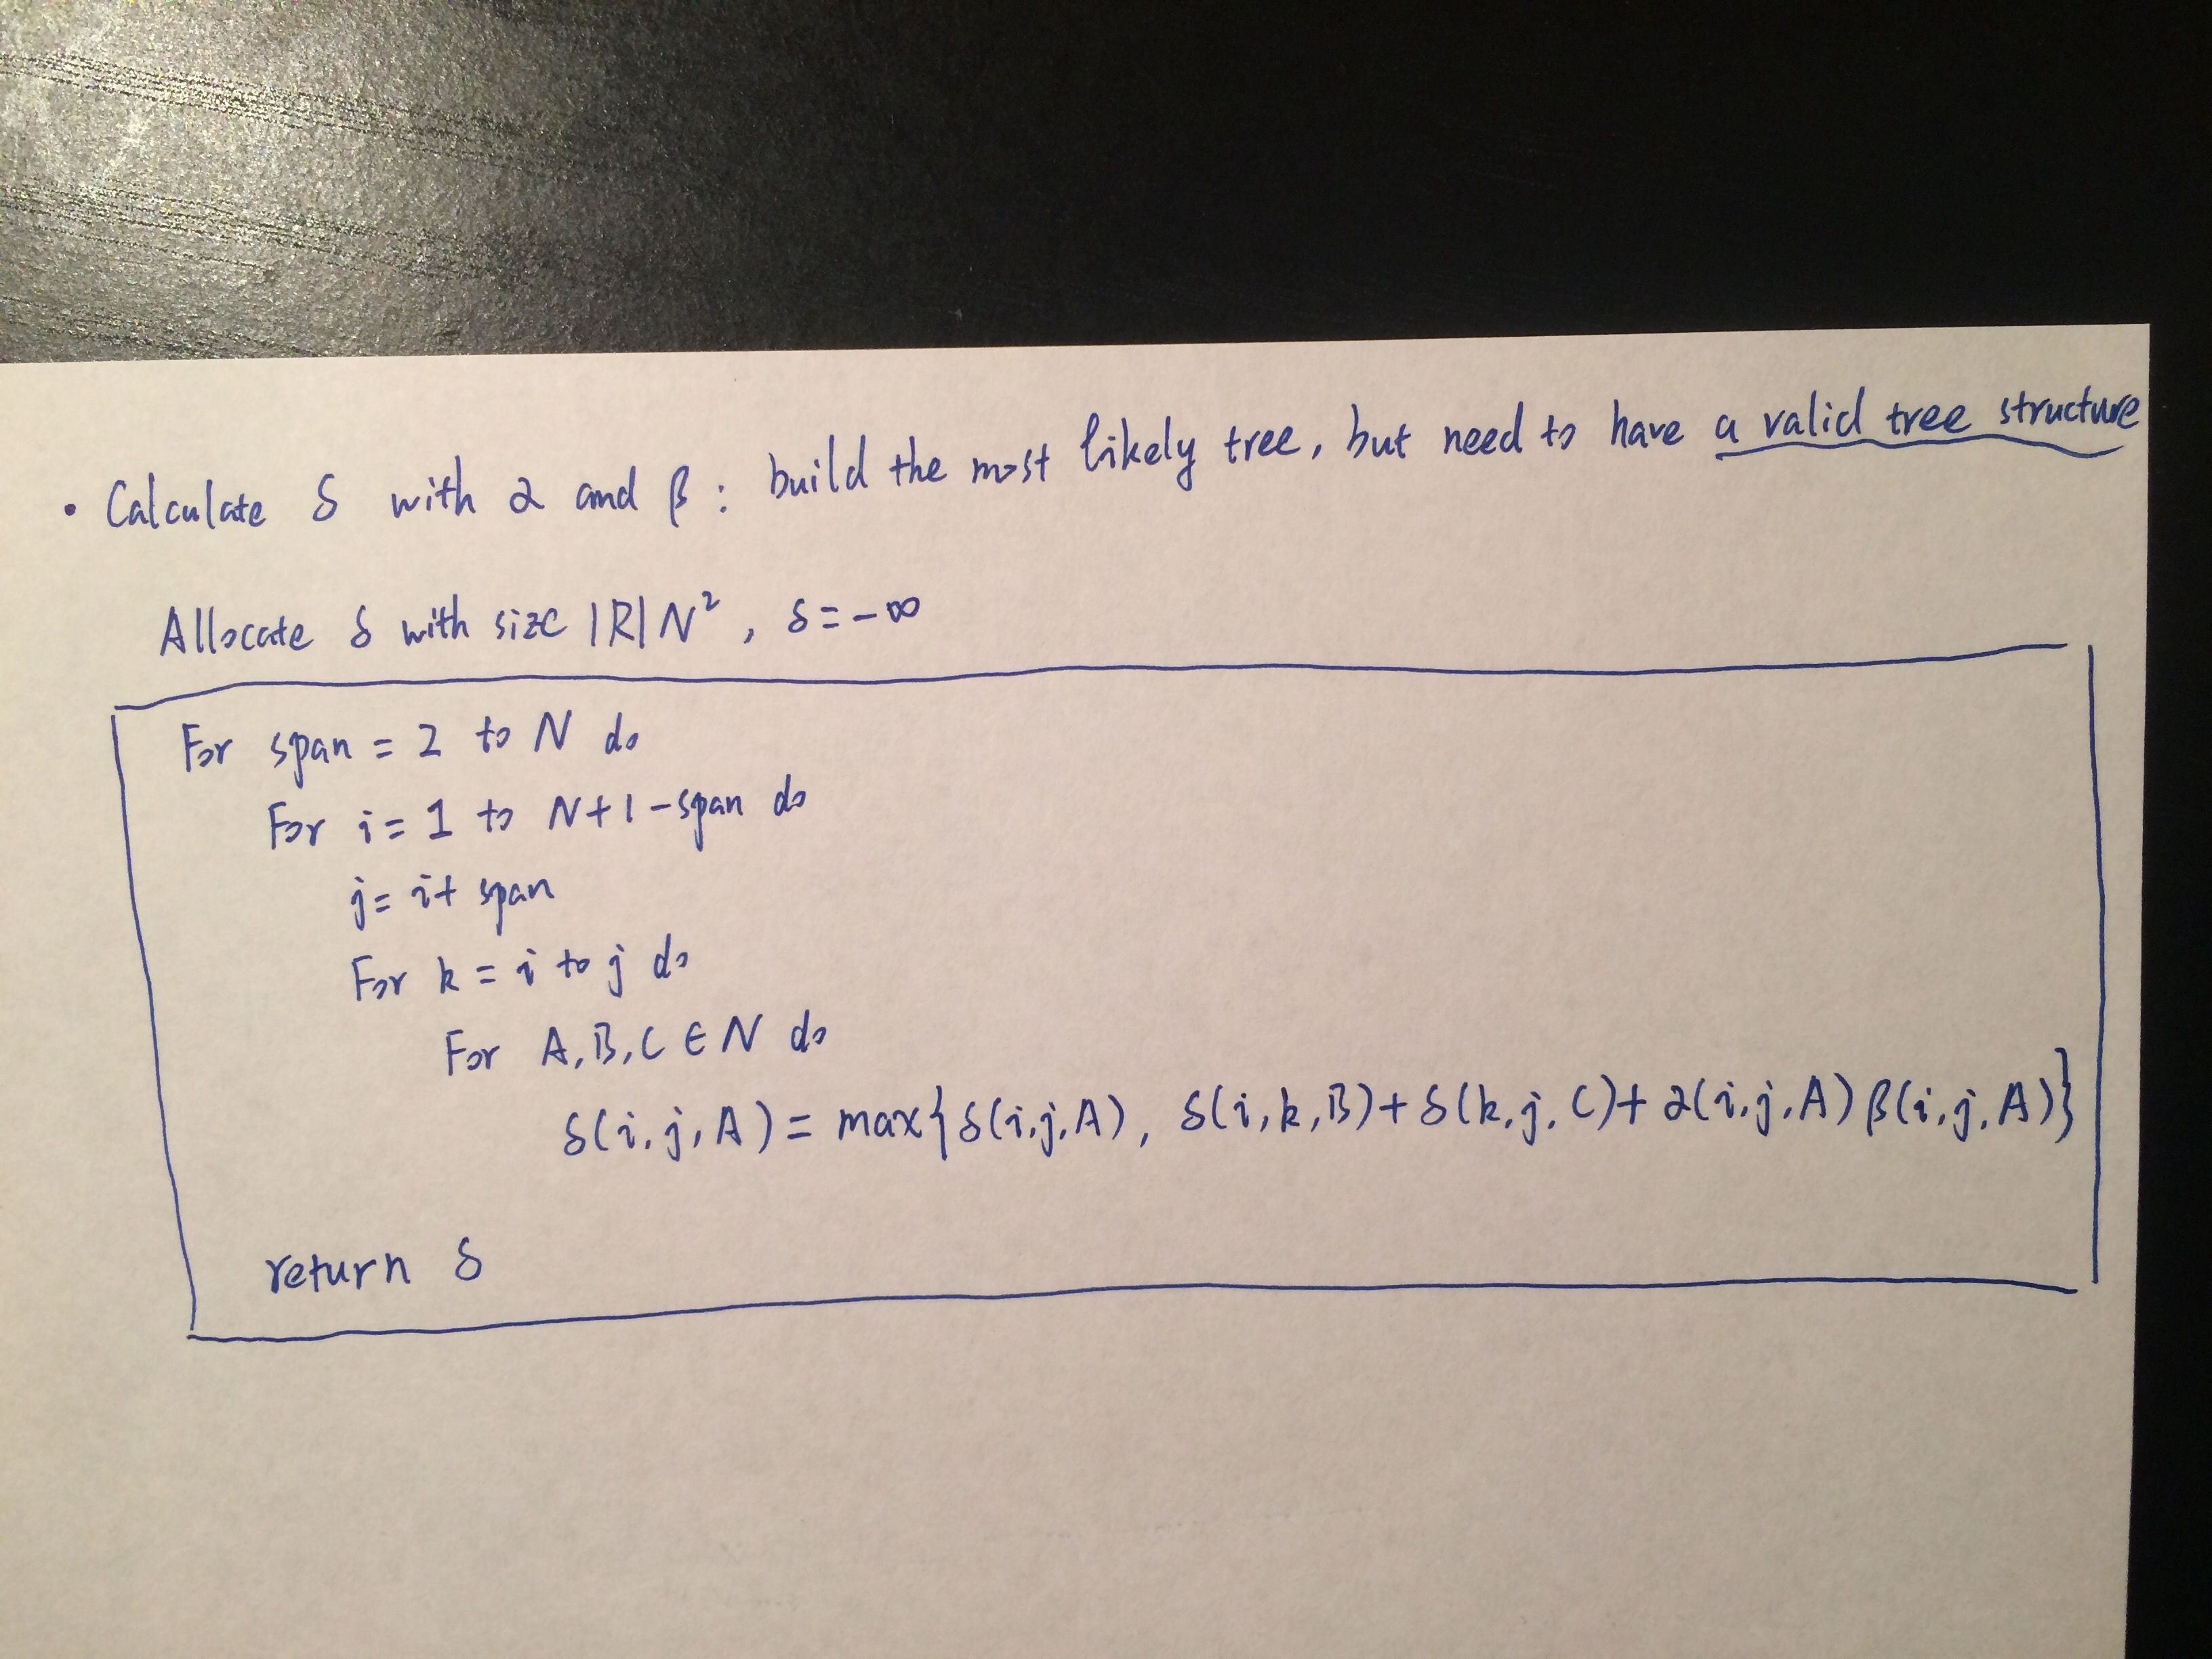 • Calculate δ with α and β : build the most likely tree, but need to have a valid tree structure
Allocate δ with size |R| N², δ = -∞
For span = 2 to N do
For i = 1 to N+1-span do
j = i + span
For k = i to j do
For A, B, C ∈ N do
δ(i, j, A) = max{δ(i, j, A), δ(i, k, B) + δ(k, j, C) + α(i, j, A) β(i, j, A)}
return δ